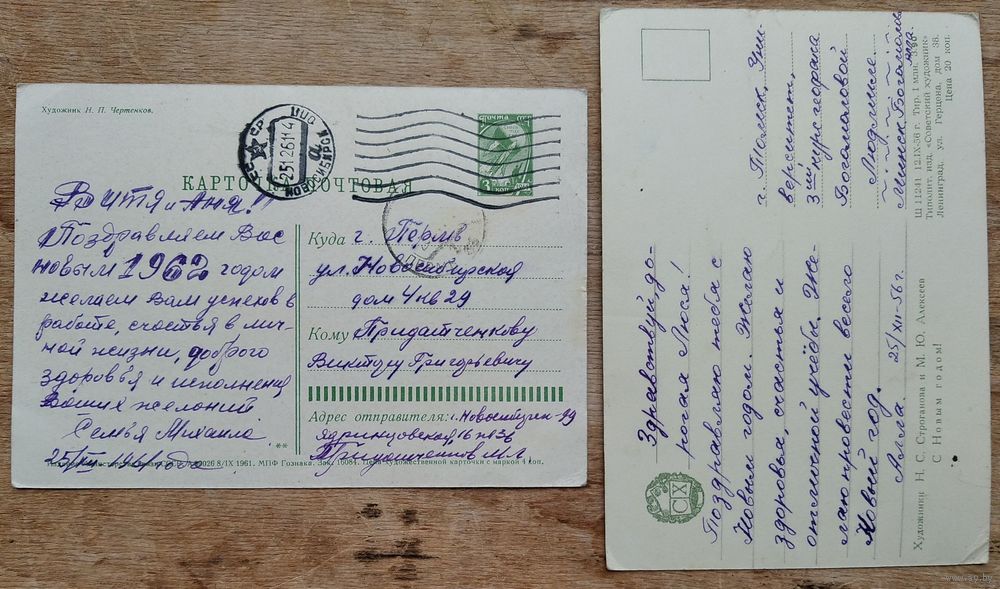 Художник Н. П. Чертенков.
КАРТОЧКА ПОЧТОВАЯ
ПОЧТА СССР
НОВОСИБИРСК
25 12 61 14
Витя и Аня!!
Поздравляем Вас
новым 1962 годом
желаем Вам успехов в
работе, счастья в лич-
ной жизни, доброго
здоровья и исполнения
Ваших желаний
Семья Михаила
25/XII 1961 года
Куда г. Пермь
ул. Новосибирская
дом 4 кв 29
Кому Придатченкову
Виктору Григорьевичу
Адрес отправителя: г. Новосибирск-99
Ядринцовская 16 кв 36
Придатченков М.Г.
29026 8/IX 1961. МПФ Гознака. Зак. 16084. Цена художественной карточки с маркой 4 коп.
Здравствуй, до-
рогая Люся!
Поздравляю тебя с
Новым годом. Желаю
здоровья, счастья и
отличной учёбы. Же-
лаю провести весело
Новый год.
Алла. 25/XII-56 г.
г. Томск, Уни-
верситет,
3й курс геофака
Богомаловой
Людмиле.
Минск Богомолова
Алла.
Художники Н. С. Строганова и М. Ю. Алексеев
С Новым годом!
Ш 11241 12.IX-56 г. Тир. 1 млн. З. 90
Типолит. изд. «Советский художник»
Ленинград, ул. Герцена, дом 38.
Цена 20 коп.
СХ
www.ay.by